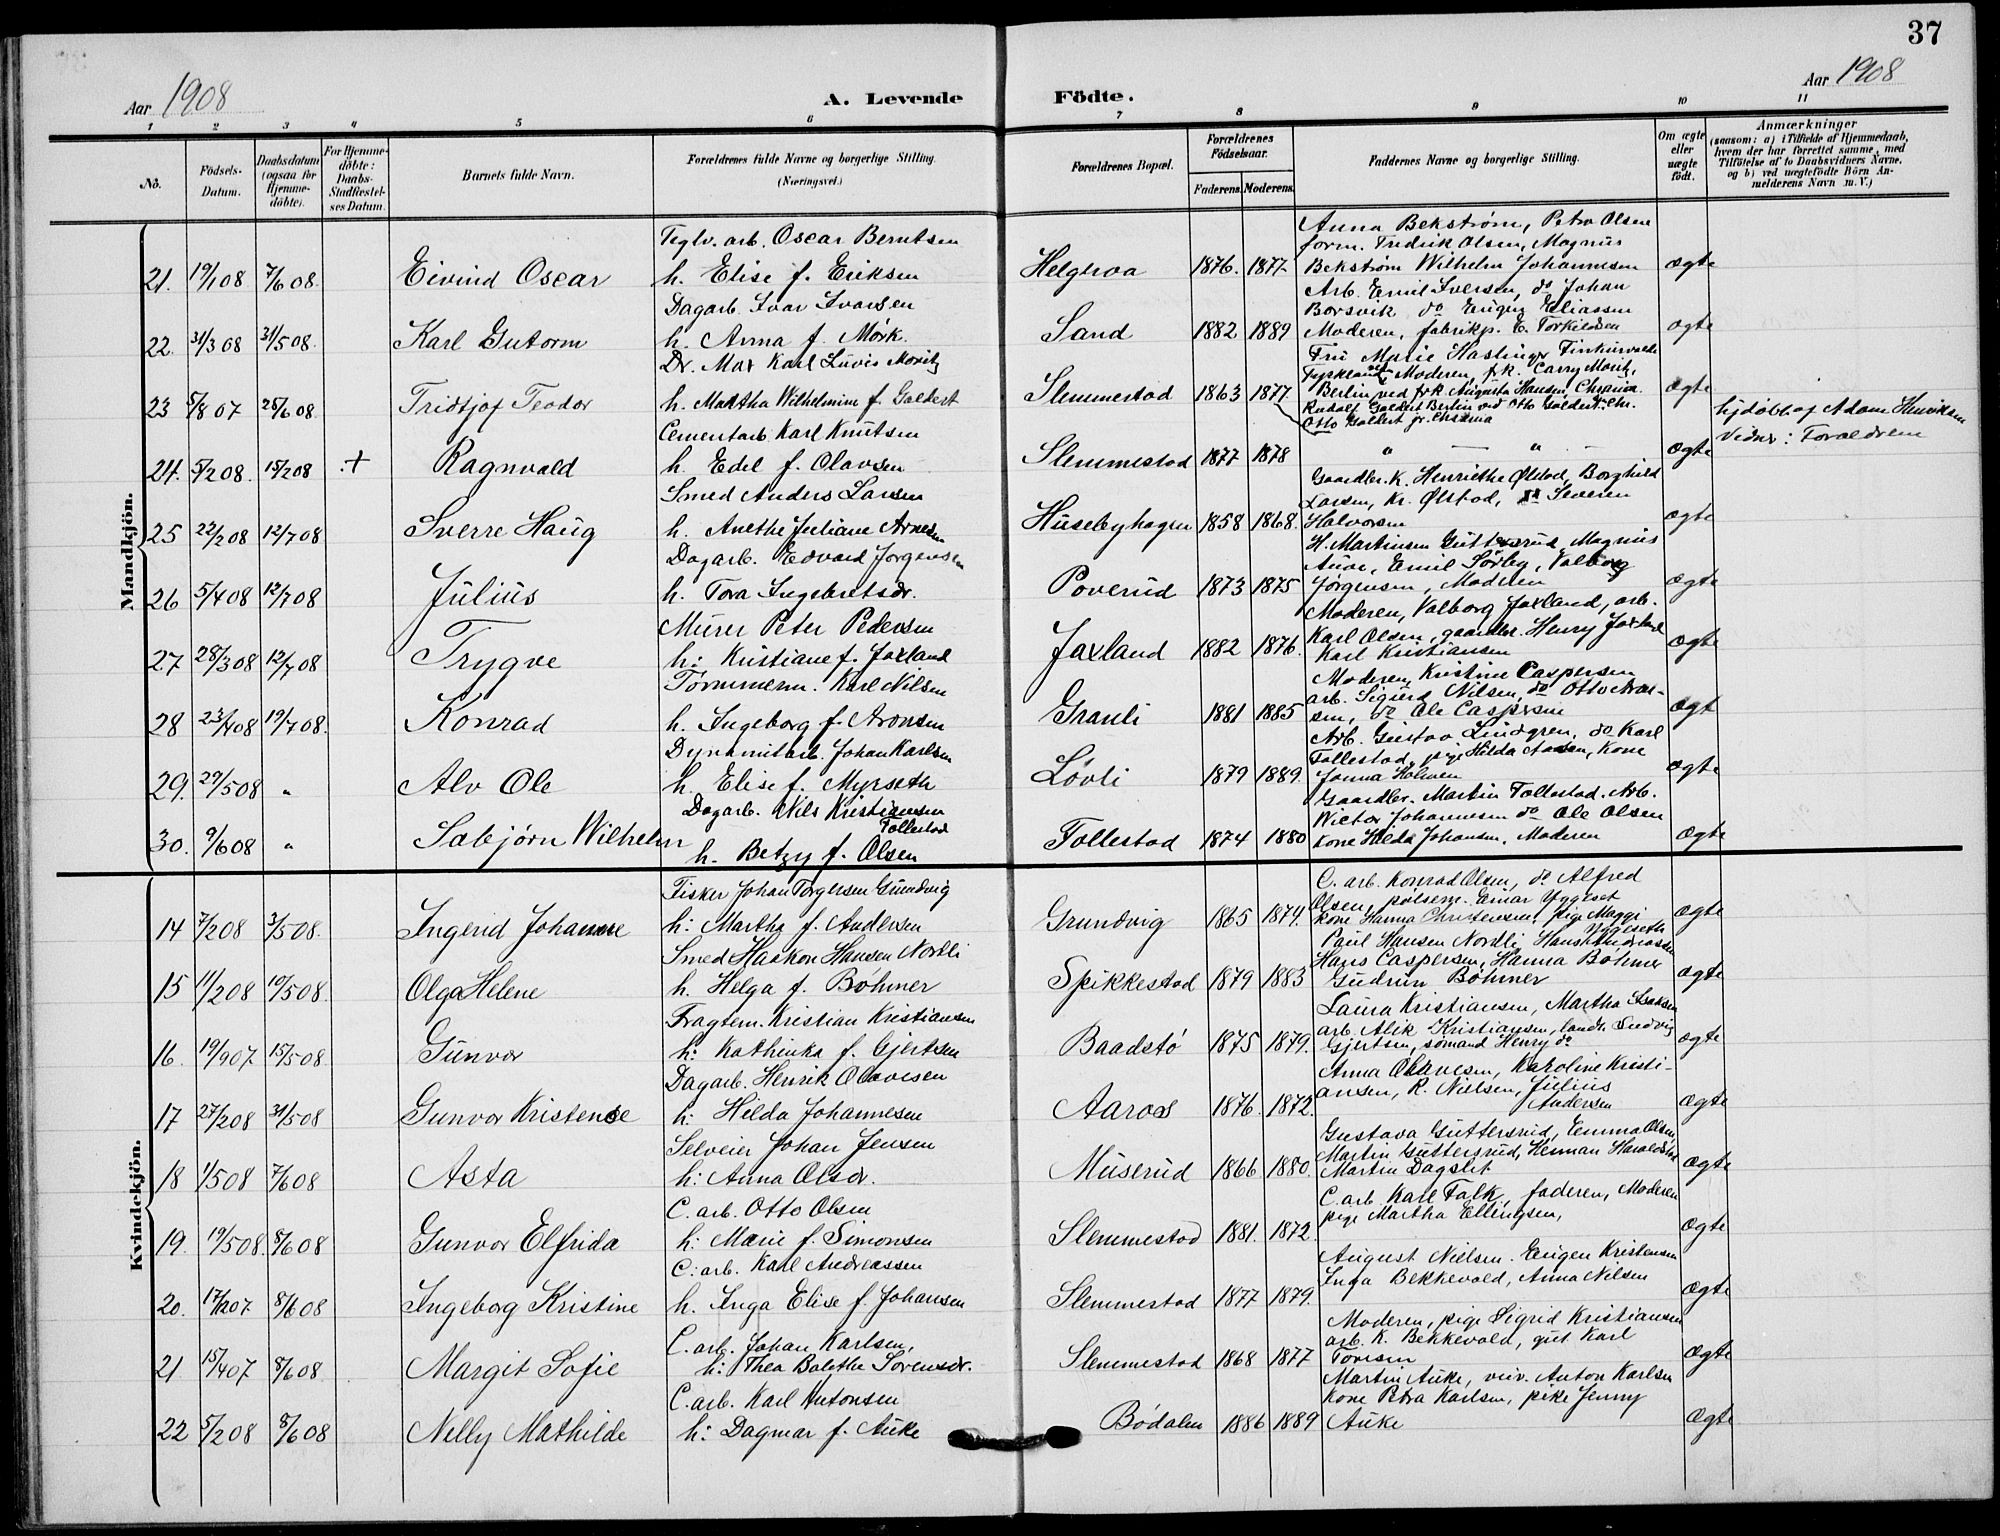 37
Aar 1908
A. Levende Födte.
Aar 1908
1 2 3 4 5 6 7 8 9 10 11
No.
Födsels-Datum.
Daabsdatum (ogsaa for Hjemme-döbte).
For Hjemme-döbte: Daabs-Stadfæstel-ses Datum.
Barnets fulde Navn.
Forældrenes fulde Navne og borgerlige Stilling.
(Næringsvei.)
Forældrenes Bopæl.
Forældrenes Födselsaar.
Faderens. Moderens.
Faddernes Navne og borgerlige Stilling.
Om ægte eller uægte födt.
Anmærkninger
(saasom: a) i Tilfælde af Hjemmedaab, hvem der har forrettet samme, med Tilföielse af to Daabsvidners Navne, og b) ved uægtefödte Börn An-melderens Navn m. V.)
Mandkjön.
Teglv. arb. Oscar Berntsen
Anna Bekstrøm, Petra Olsen
form. Fredrik Olsen, Magnus
21. 19/1 08 7/6 08. Eivind Oscar h. Elise f. Eriksen Helgeroa 1876. 1877. Bekstrøm Wilhelm Johannesen ægte
Dagarb. Ivar Ivarsen
Arb. Emil Iversen, do Johan
Borsvik do Eugen Eliassen
22. 31/3 08 31/5 08. Karl Gutorm h. Anna f. Mörk. Sand 1882 1889 Moderen, fabrikp. E. Torkildsen ægte
Dr. Max Karl Luvis Moritz
Fru Marie Haslinger Finkurvalde
Tyskland, Moderen, frk. Carry Moritz,
23 5/8 07 25/6 08. Fridtjof Teodor h. Martha Wilhelmine f. Galdert Slemmestad 1863 1877. Berlin ved frk Augusta Hansen, Chrania. ægte
Rudolf Galdert Berlin ved Otto Galdert Chr.
Otto Galdert jr. Chrania
Cementarb. Karl Knutsen
hjdøbt af Adam Henriksen
Vidner: Forældrene
24. 5/2 08. 15/2 08 .+ Ragnvald h. Edel f. Olavsen Slemmestad 1877 1878 " — " — ægte
Smed Anders Larsen
Gaardbr. K. Henriette Ølstad, Borghild
Larsen, Kr. Ølstad, do Severin
25 22/2 08 12/7 08 Sverre Haug h. Anethe Juliane Arnesen Husebyhagen 1858 1868. Halvorsen ægte
Dagarb. Edvard Jørgensen
H. Martinsen Guttersrud, Magnus
Auve, Emil Sørby, Valborg
26 5/4 08 12/7 08 Julius h. Tora Ingebretsdr. Poverud 1873 1875 Jørgensen, Moderen ægte
Murer Peter Pedersen
Moderen, Valborg Jaxland, arb.
Karl Olsen, gaardbr. Henry Jaxland
27 28/3 08 12/7 08 Trygve h: Kristiane f. Jaxland Jaxland 1882 1876. Karl Kristiansen ægte
Tømmerm. Karl Nilsen
Moderen, Kristine Caspersen
arb. Sigurd Nilsen, do Otto Aron-
28 23/4 08 19/7 08. Konrad h. Ingeborg f. Aronsen Granli 1881 1885 sen, do Ole Caspersen ægt
Dynamitarb. Johan Karlsen
Arb. Gustav Lindgren, do Karl
Follestad, pige Hilda Aasen, Kone
29. 29/5 08 " Alv Ole h. Elise f. Myrseth Løvli 1879 1889. Janna Holmen ægte
Dagarb. Nils Kristiansen Follestad
Gaardbr. Martin Follestad. Arb.
Victor Johannesen do Ole Olsen
30. 9/6 08 " Sæbjørn Wilhelm h. Betzy f. Olsen Follestad 1874 1880 Kone Hilda Johansen, Moderen ægte
Kvindekjön.
Fisker Johan Torgersen Grundvig
C. arb. Konrad Olsen, do Alfred
Olsen, pølsem. Einar Yggeset
14 7/2 08 3/5 08. Ingerid Johanne h: Martha f. Andersen Grundvig 1865 1874. Kone Hanna Christensen, pige Maggi Yggeseth ægte
Smed Haakon Hansen Nordli
Paul Hansen Nordli, Hans Andreassen
Hans Caspersen, Hanna Bøhmer
15 11/2 08 10/5 08. Olga Helene h. Helga f. Bøhmer Spikkestad 1879 1883 Gudrun Bøhmer ægte
Fragtem. Kristian Kristiansen
Laura Kristiansen, Martha Isaksen
arb. Alik Kristiansen, landh. Ludvig
16. 19/9 07 15/5 08. Gunvor h: Kathinka f. Gjertsen Baadstø 1875 1879. Gjertsen, sømand Henry do ægte
Dagarb. Henrik Olavesen
Anna Olavesen, Karoline Kristi-
ansen, R. Nielsen, Julius
17 27/2 08 31/5 08 Gunvor Kristense h: Hilda Johannesen Aaros 1876. 1872. Andersen ægte
Selveier Johan Jensen
Gustava Guttersrud, Emma Olsen,
Martin Guttersrud, Herman Haraldstad
18 1/5 08 7/6 08 Asta h: Anna Olsdr. Muserud 1866 1880. Martin Dagslet ægte
C. arb. Otto Olsen
C. arb. Karl Falk, faderen, Moderen
pige Martha Ellingsen,
19. 19/5 08. 8/6 08 Gunvor Elfrida h: Marie f. Simonsen Slemmestad 1881. 1872. ægte
C: arb. Karl Andreassen
August Nielsen. Eugen Kristensen
Inga Bekkevold, Anna Nilsen
20. 17/12 07 8/6 08 Ingeborg Kristine h. Inga Elise f. Johansen Slemmestad 1877 1879. ægte
C. arb. Johan Karlsen,
Moderen, pige Sigrid Kristiansen
arb. K. Bekkevold, gut Karl
21 15/4 07 8/6 08 Margit Sofie h: Thea Bolethe Sorensdr. Slemmestad 1868 1877 Toresen ægte
C. arb. Karl Antonsen
Martin Auke, Anton Karlsen
Kone Petra Karlsen, pike Jenny
22 5/2 08 8/6 08 Nelly Mathilde h: Dagmar f. Auke Bødalen 1886 1889 Auke ægte